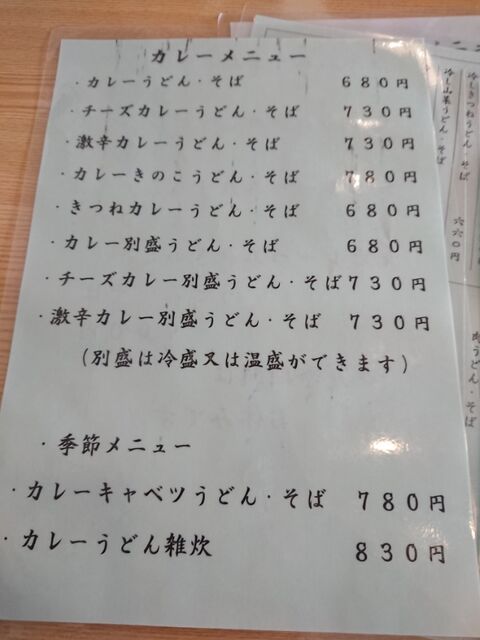 カレーメニュー
・カレーうどん・そば ６８０円
・チーズカレーうどん・そば ７３０円
・激辛カレーうどん・そば ７３０円
・カレーきのこうどん・そば ７８０円
・きつねカレーうどん・そば ６８０円
・カレー別盛うどん・そば ６８０円
・チーズカレー別盛うどん・そば ７３０円
・激辛カレー別盛うどん・そば ７３０円
（別盛は冷盛又は温盛ができます）
・季節メニュー
・カレーキャベツうどん・そば ７８０円
・カレーうどん雑炊 ８３０円
冷しきつねうどん・そば
冷し山菜うどん・そば
六六〇円
肉うどん・そば